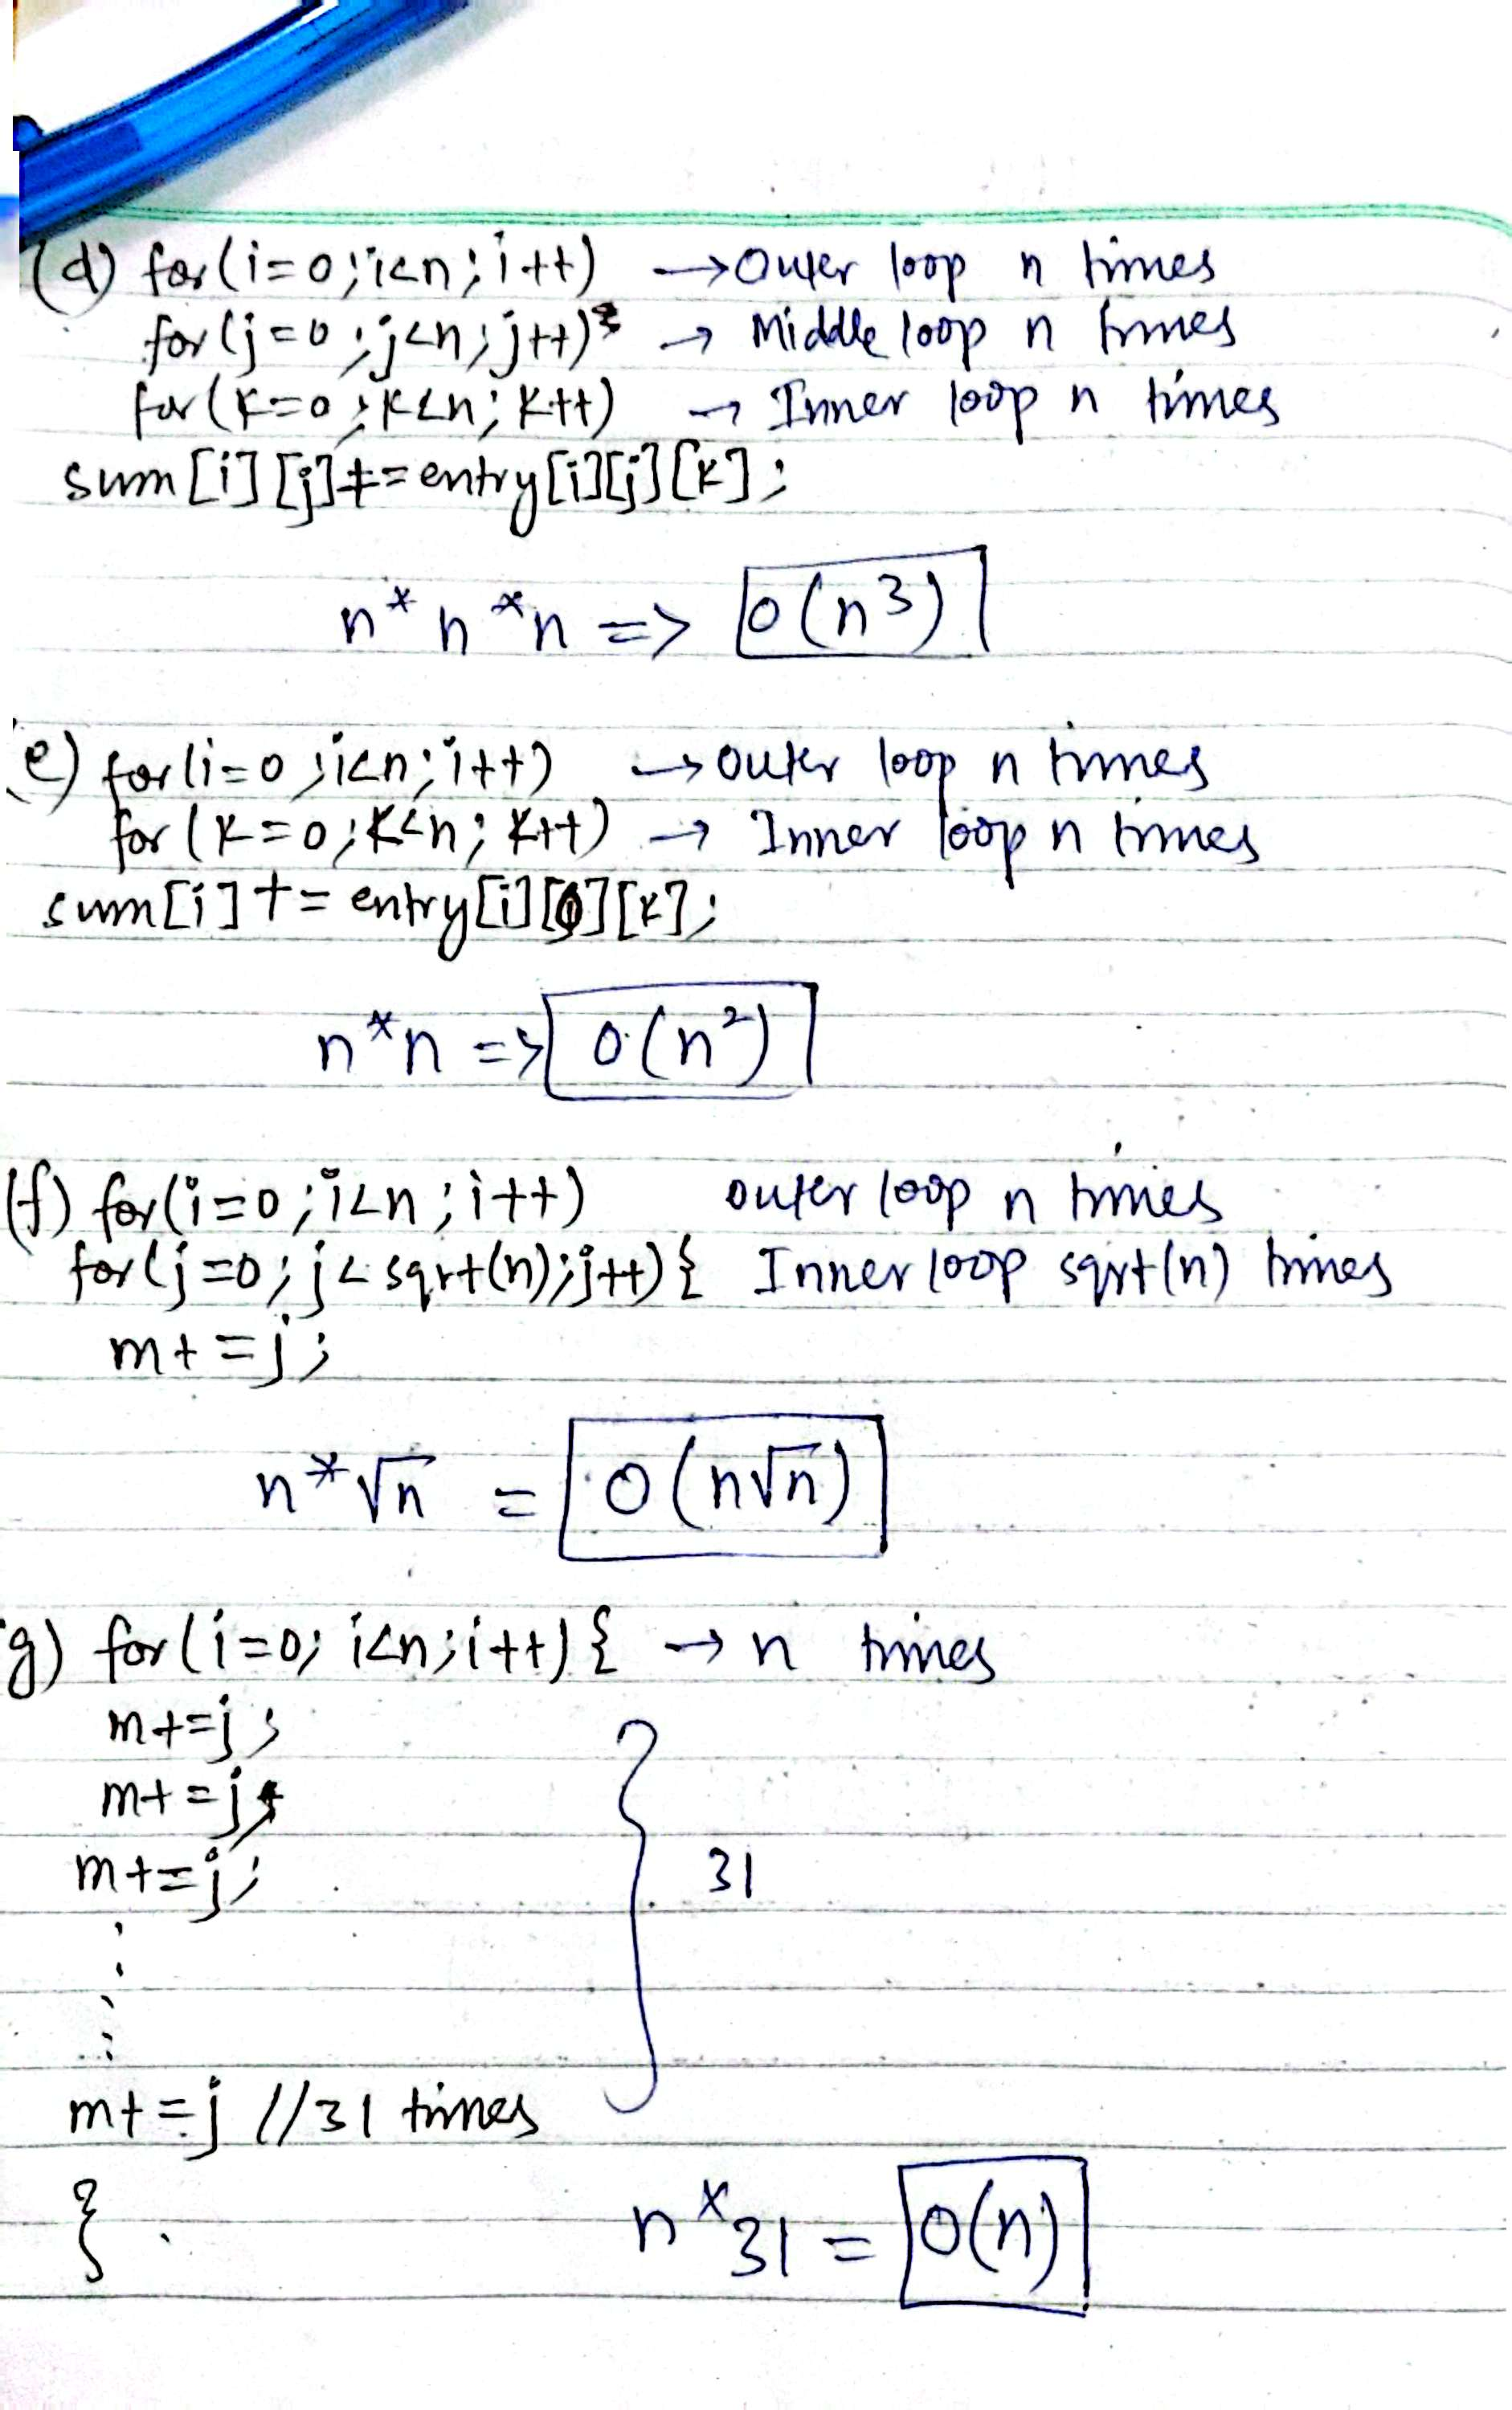 (d) for(i=0;i<n;i++) →Outer loop n times
for(j=0;j<n;j++) → Middle loop n times
for(k=0;k<n;k++) → Inner loop n times
sum[i][j]+=entry[i][j][k];
n*n*n => O(n3)
e) for(i=0;i<n;i++) → outer loop n times
for(k=0;k<n;k++) → Inner loop n times
sum[i]+=entry[i][0][k];
n*n => O(n²)
(f) for(i=0;i<n;i++) outer loop n times
for(j=0;j<sqrt(n);j++){ Inner loop sqrt(n) times
m+=j;
n*√n = O(n√n)
g) for(i=0;i<n;i++){ → n times
m+=j;
m+=j;
m+=j; 31
m+=j //31 times
}
n*31 = O(n)